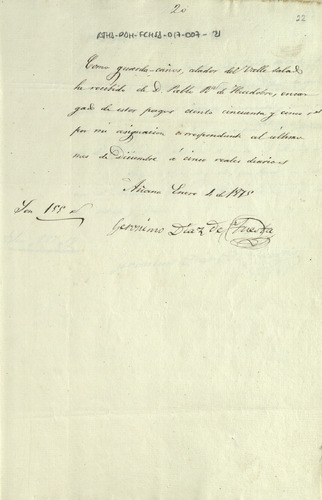 20
22
ATHA-DAH-FCHLA-017-007-21
Como guarda-caños, alador del Valle salado
he recibido de D. Pablo de encar
gado de estos pagos ciento cincuenta y cinco rs
por mi asignacion correspondiente al ultimo
mes de Diciembre á cinco reales diarios
Añana Enero 1 de 1875
Son 155 rs
Geronimo Diaz de Tuesta